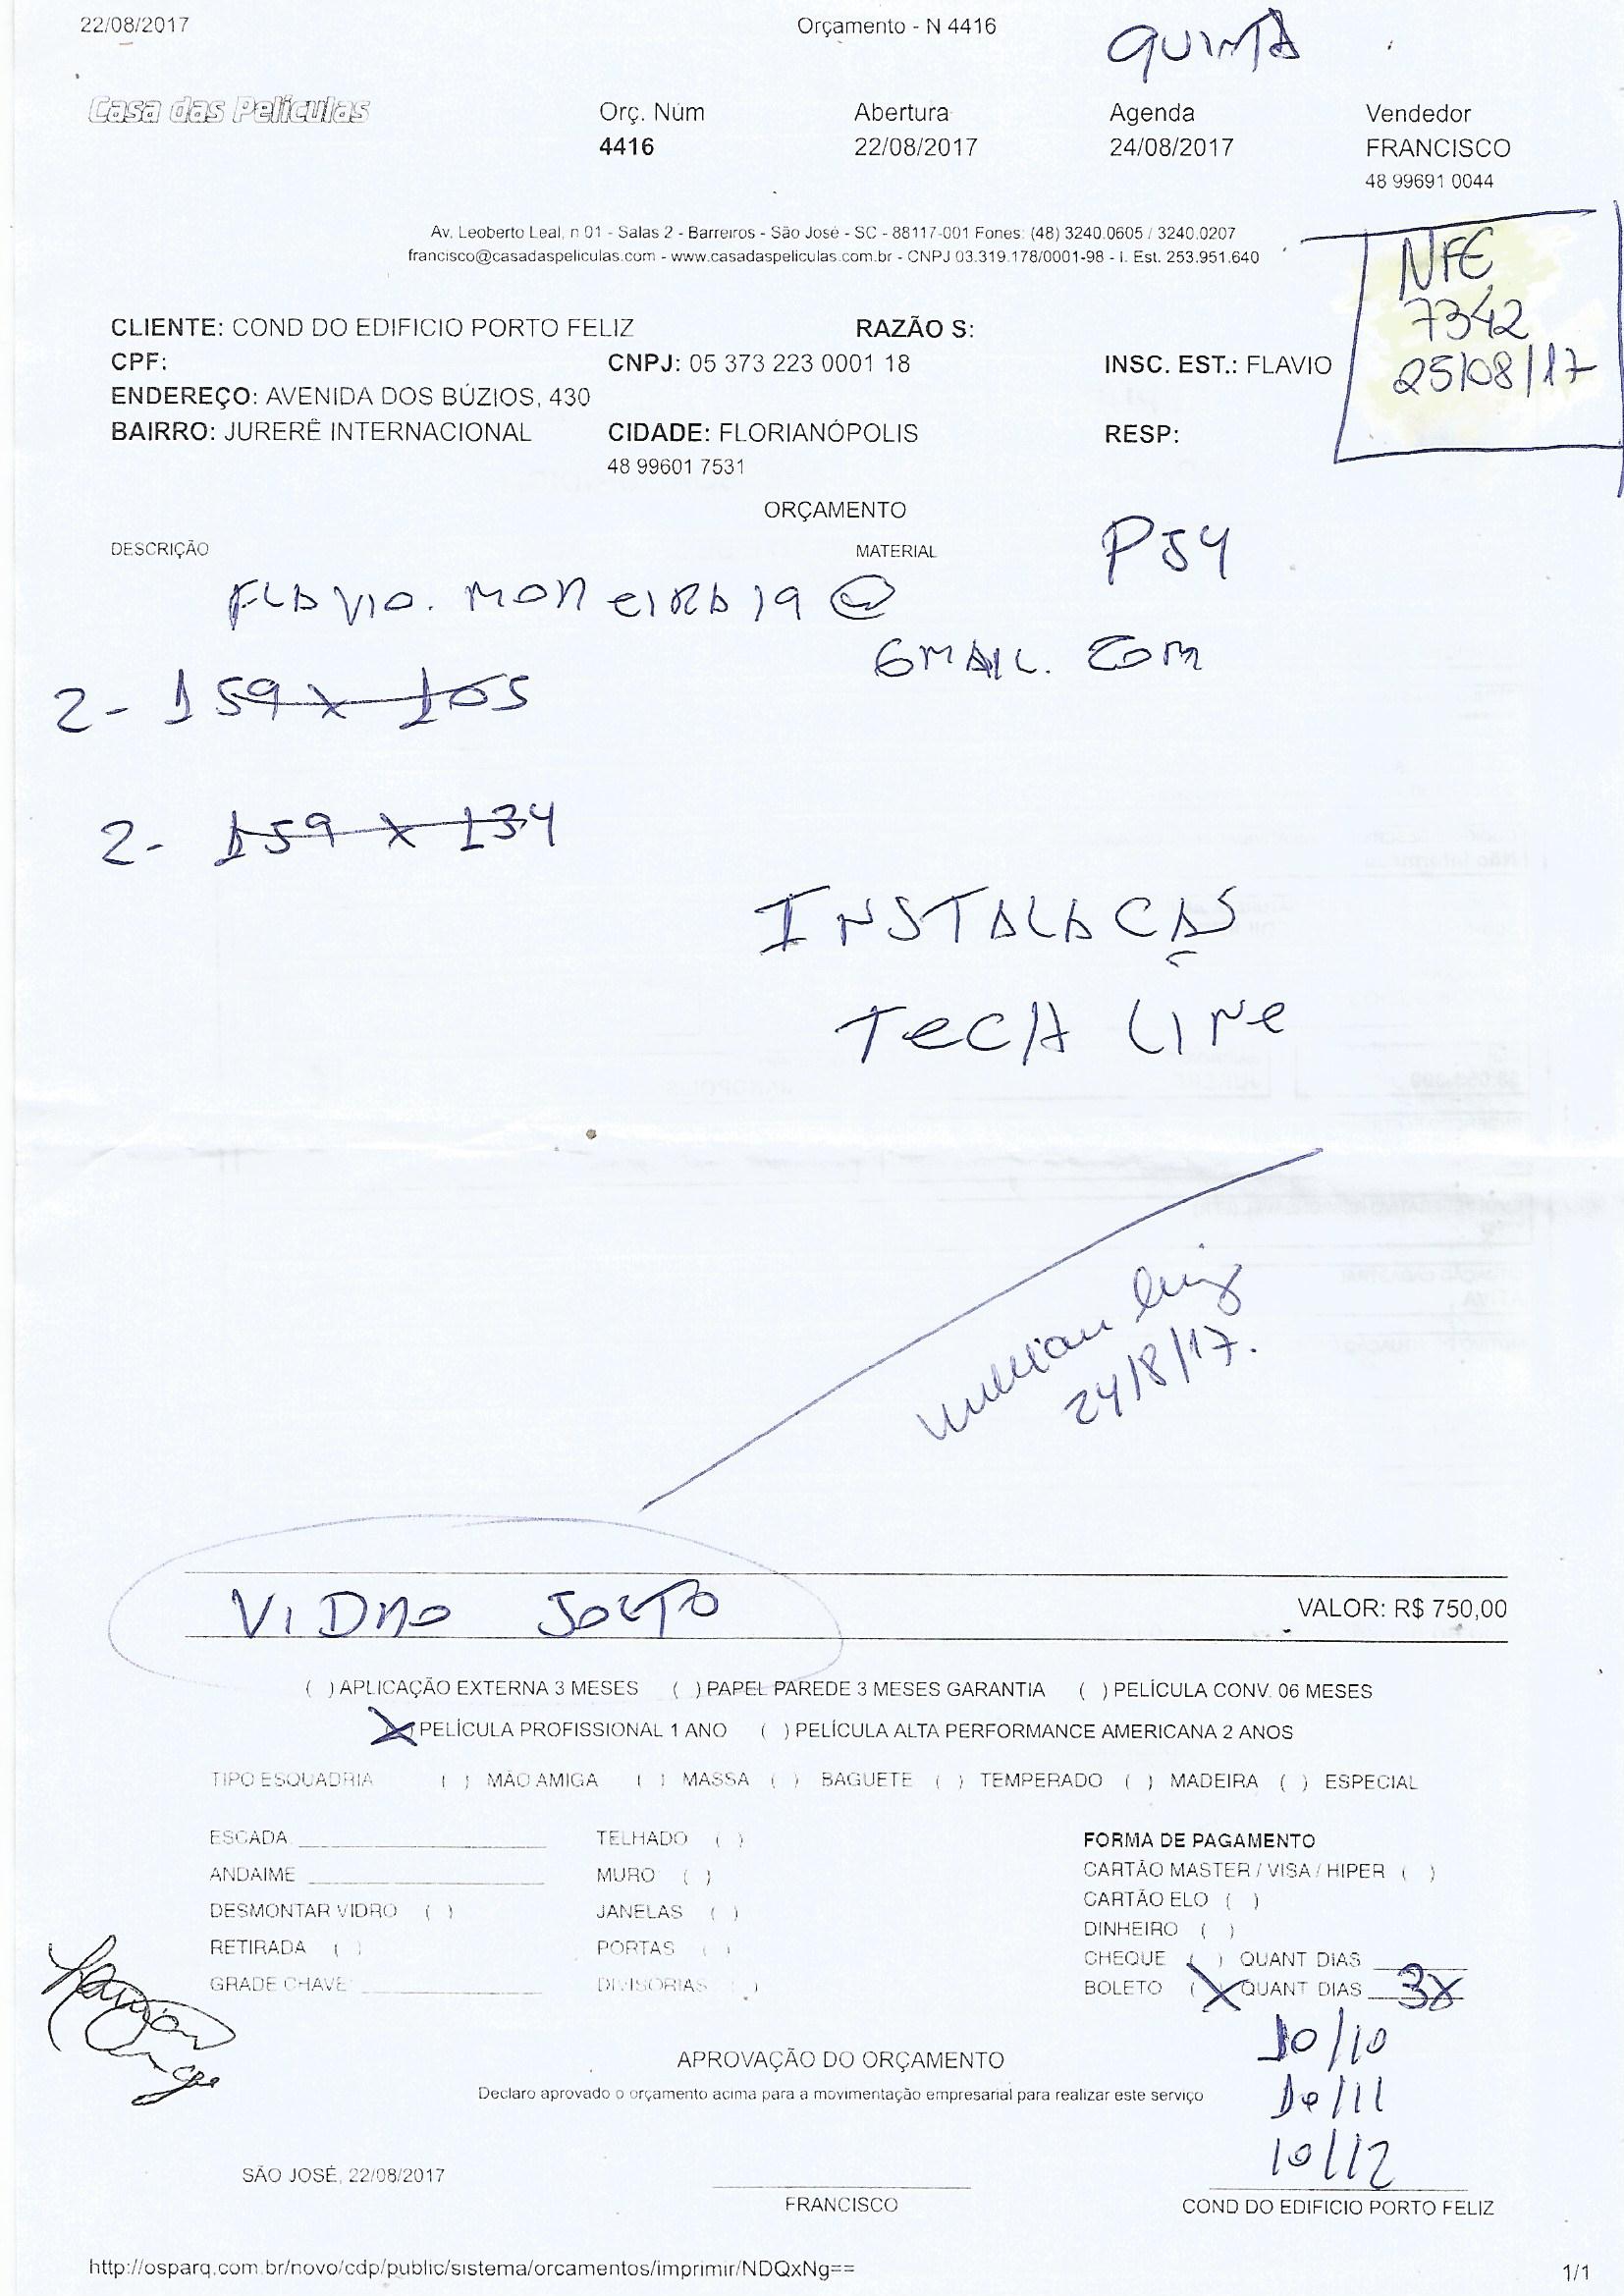 22/08/2017 Orçamento - N 4416
QUINTA
Casa das Películas Orç. Núm Abertura Agenda Vendedor
4416 22/08/2017 24/08/2017 FRANCISCO
48 99691 0044
Av. Leoberto Leal, n 01 - Salas 2 - Barreiros - São José - SC - 88117-001 Fones: (48) 3240.0605 / 3240.0207
francisco@casadaspeliculas.com - www.casadaspeliculas.com.br - CNPJ 03.319.178/0001-98 - I. Est. 253.951.640
NFE
7342
25/08/17
CLIENTE: COND DO EDIFICIO PORTO FELIZ RAZÃO S:
CPF: CNPJ: 05 373 223 0001 18 INSC. EST.: FLAVIO
ENDEREÇO: AVENIDA DOS BÚZIOS, 430
BAIRRO: JURERÊ INTERNACIONAL CIDADE: FLORIANÓPOLIS RESP:
48 99601 7531
ORÇAMENTO
DESCRIÇÃO MATERIAL PS4
FLAVIO.MOREIRA19@
GMAIL.COM
2- 159 x 105
2- 159 x 134
INSTALAÇÃO
TECH LINE
24/8/17.
VIDRO SOLTO VALOR: R$ 750,00
( ) APLICAÇÃO EXTERNA 3 MESES ( ) PAPEL PAREDE 3 MESES GARANTIA ( ) PELÍCULA CONV. 06 MESES
(X) PELÍCULA PROFISSIONAL 1 ANO ( ) PELÍCULA ALTA PERFORMANCE AMERICANA 2 ANOS
TIPO ESQUADRIA ( ) MÃO AMIGA ( ) MASSA ( ) BAGUETE ( ) TEMPERADO ( ) MADEIRA ( ) ESPECIAL
ESCADA TELHADO ( ) FORMA DE PAGAMENTO
ANDAIME MURO ( ) CARTÃO MASTER / VISA / HIPER ( )
DESMONTAR VIDRO ( ) JANELAS ( ) CARTÃO ELO ( )
DINHEIRO ( )
RETIRADA ( ) PORTAS ( ) CHEQUE ( ) QUANT DIAS
GRADE CHAVE DIVISORIAS ( ) BOLETO (X) QUANT DIAS 3x
10/10
10/11
10/12
APROVAÇÃO DO ORÇAMENTO
Declaro aprovado o orçamento acima para a movimentação empresarial para realizar este serviço
SÃO JOSÉ, 22/08/2017
FRANCISCO COND DO EDIFICIO PORTO FELIZ
http://osparq.com.br/novo/cdp/public/sistema/orcamentos/imprimir/NDQxNg== 1/1